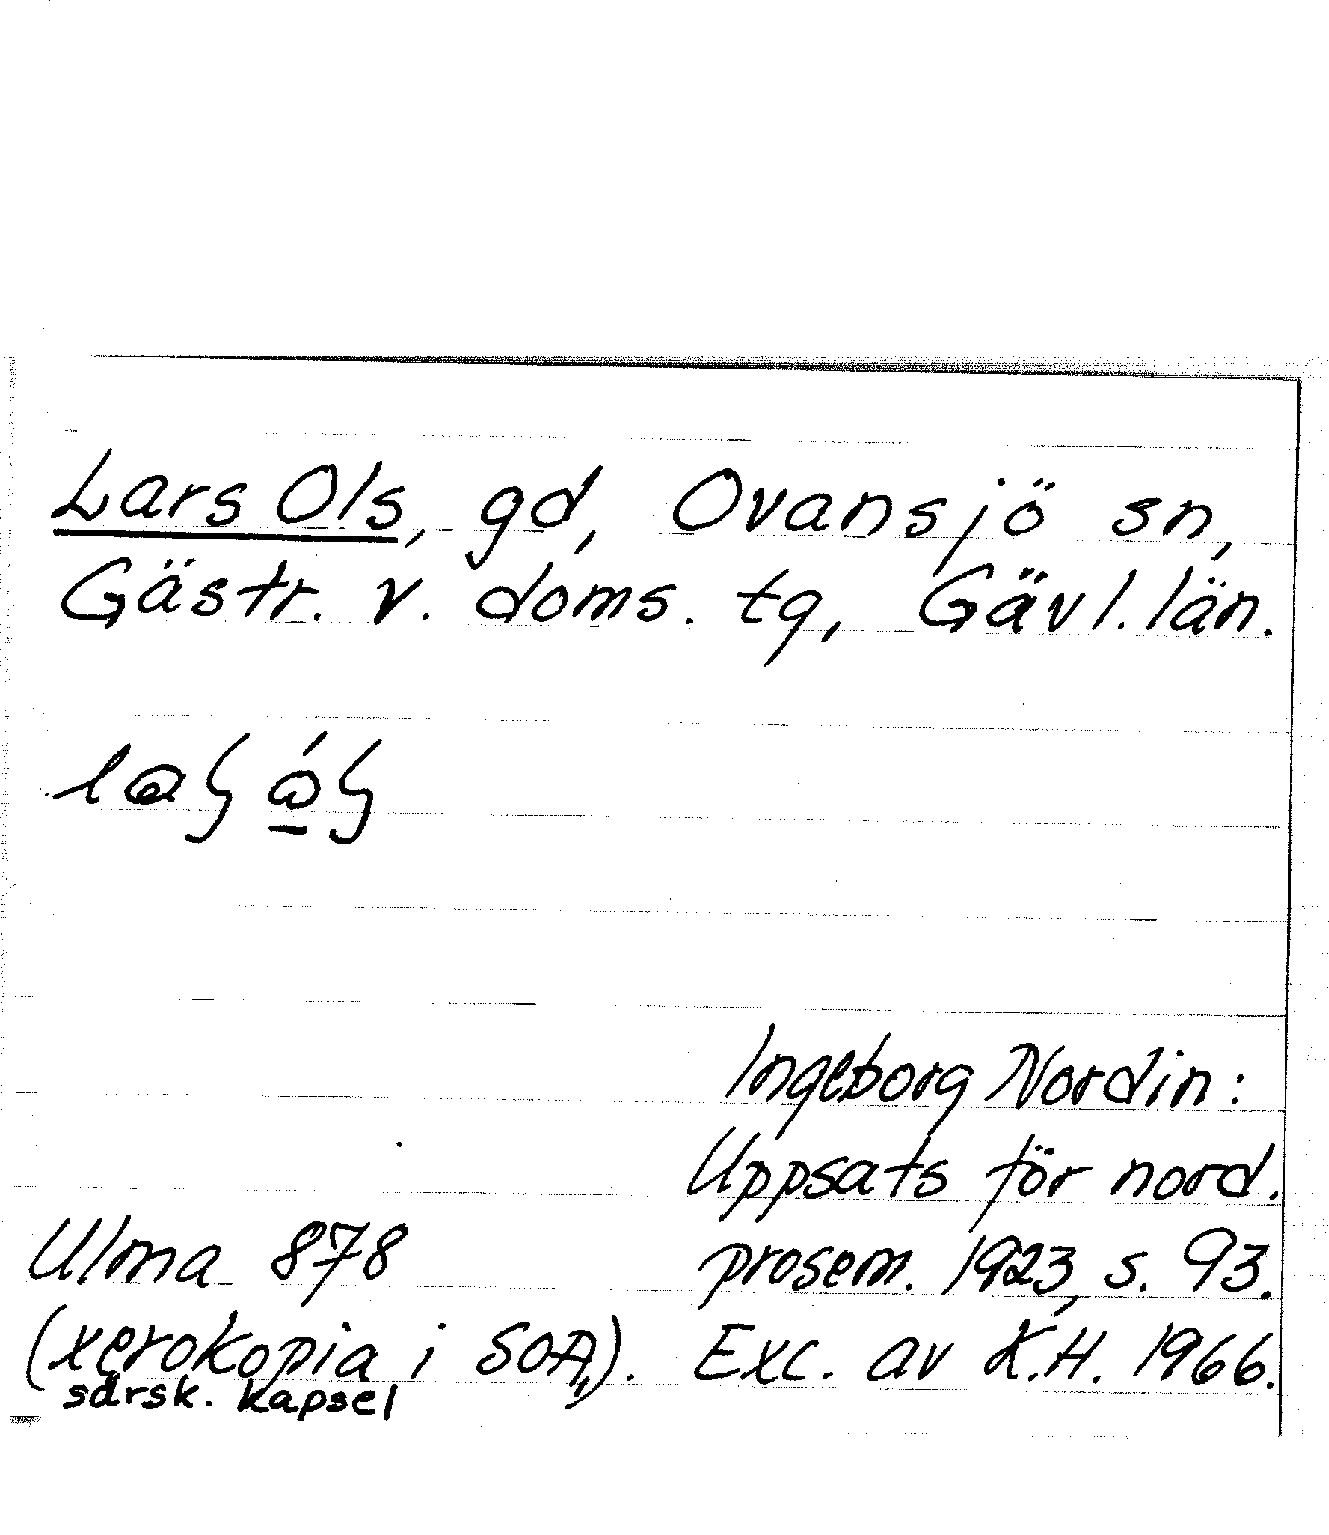 Lars Ols, gd, Ovansjö sn,
Gästr. v. doms. tg, Gävl. län.
Ingeborg Nordin:
Uppsats för nord.
Ulma 878 prosem. 1923, s. 93.
(xerokopia i SOA,). Exc. av K.H. 1966.
särsk. kapsel